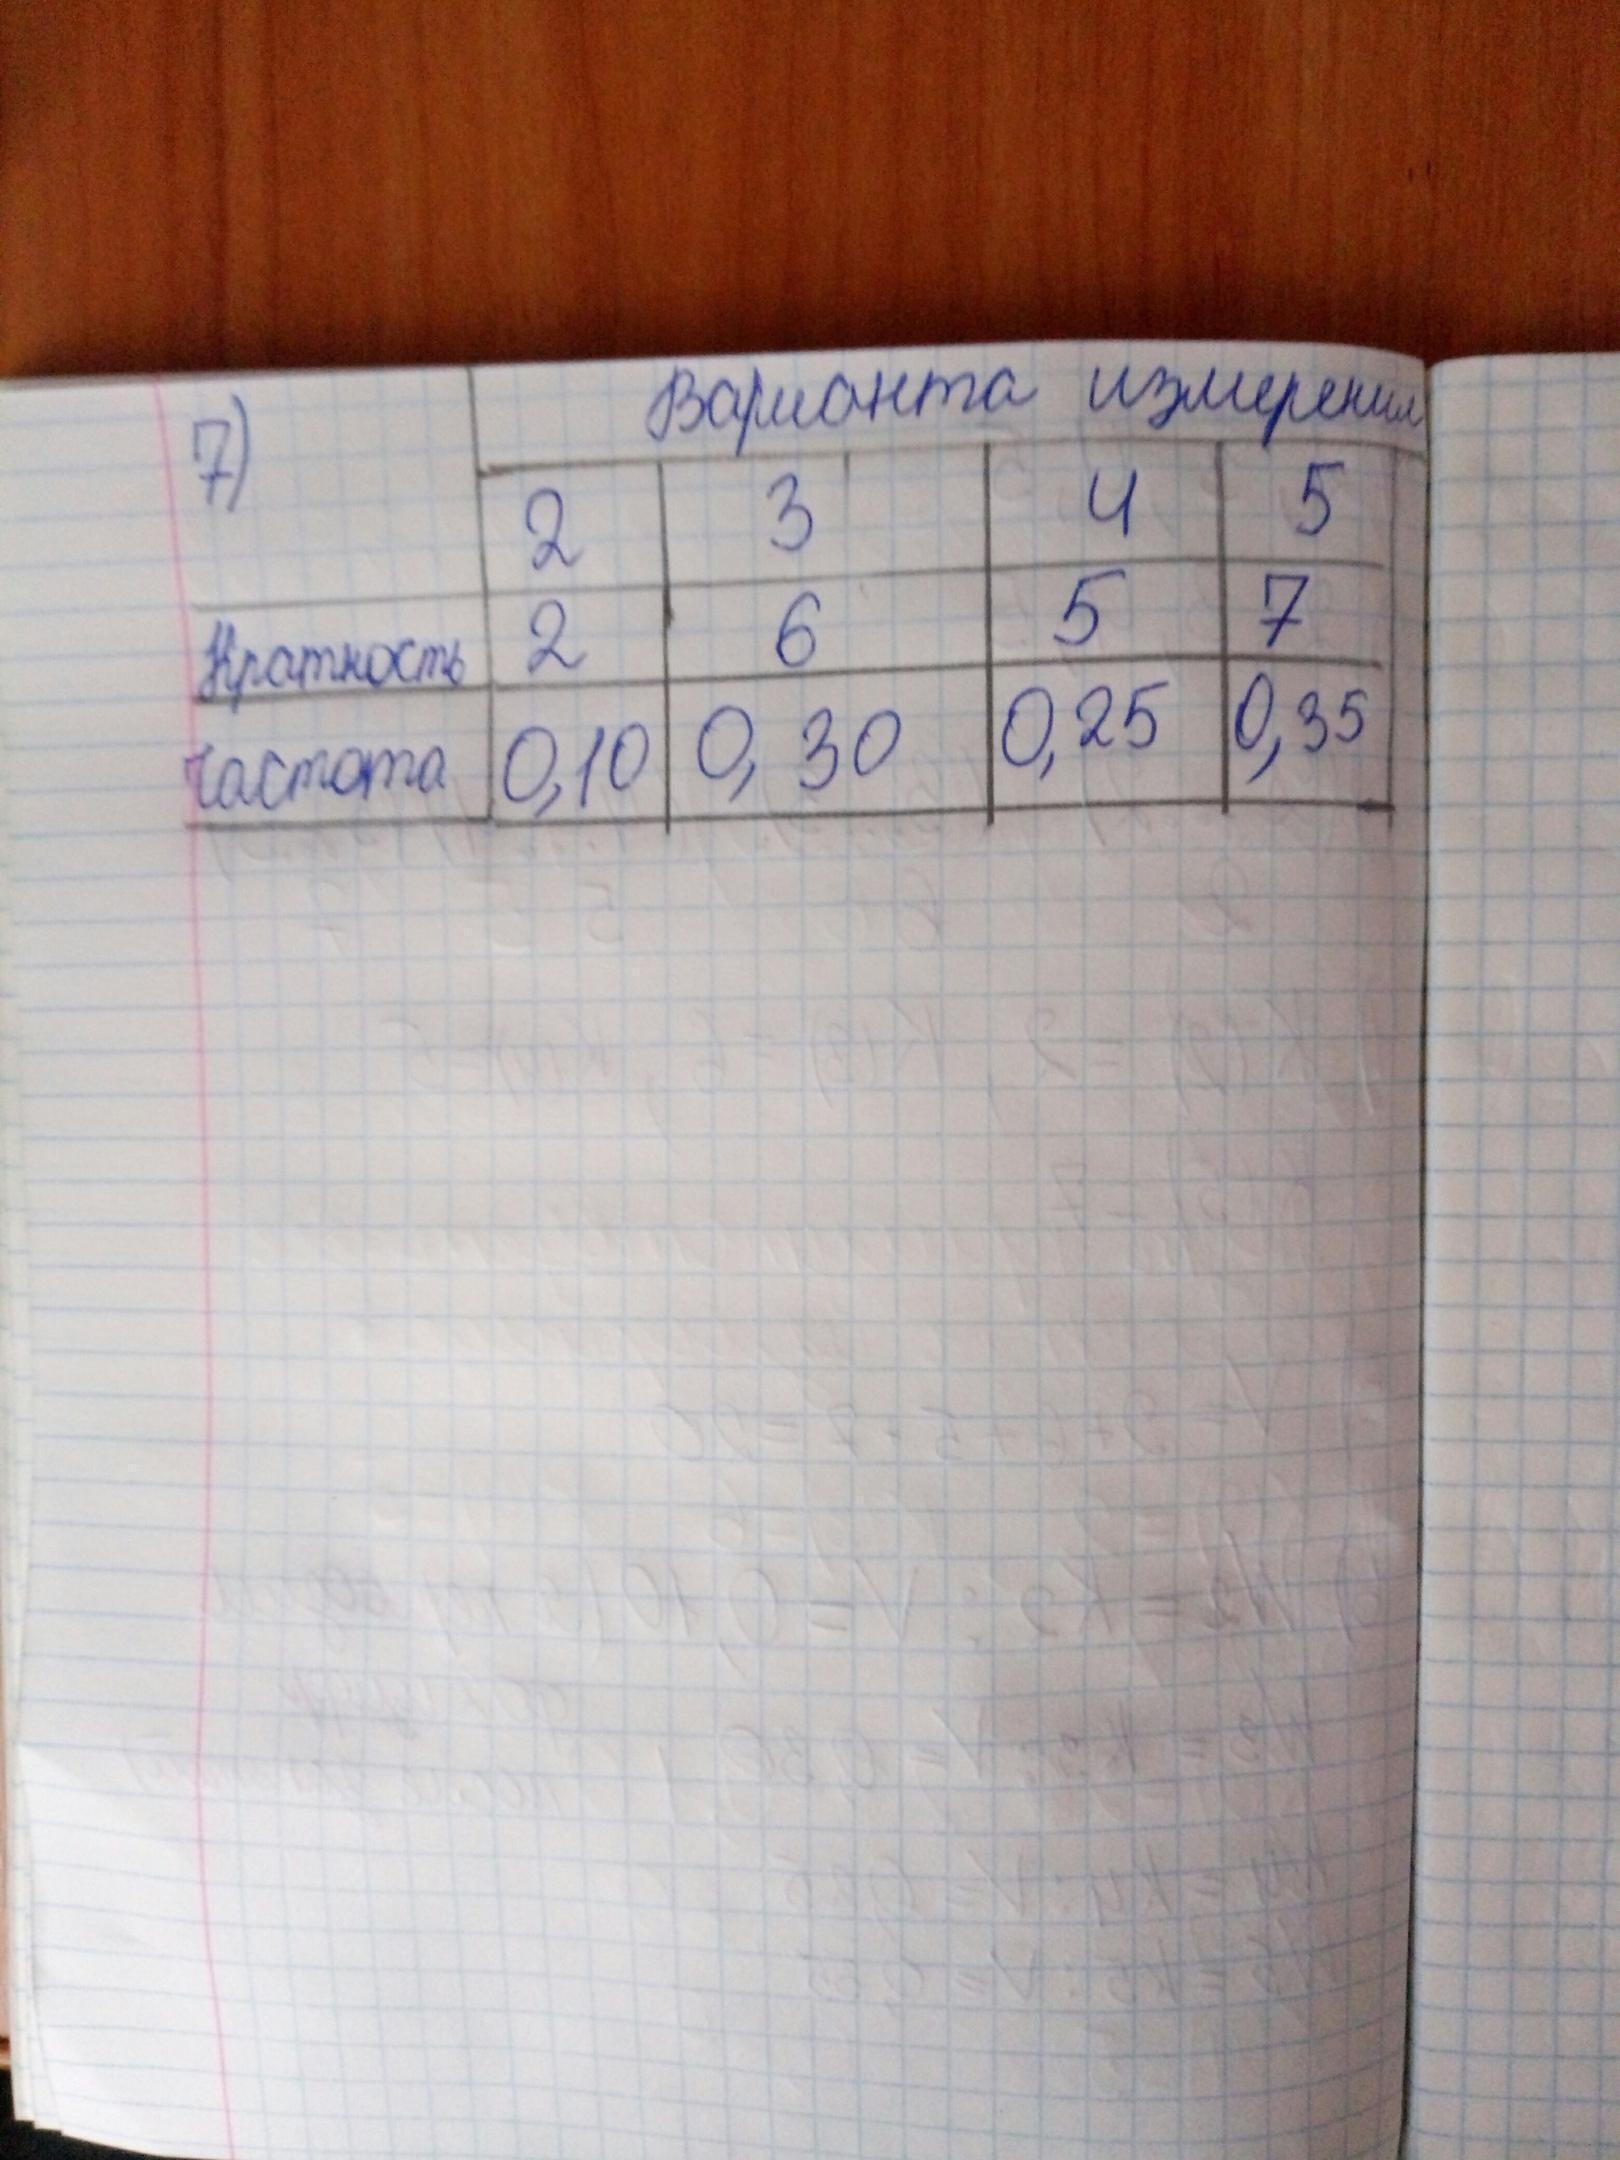 7) Варианта измерения
2 3 4 5
Кратность 2 6 5 7
Частота 0,10 0,30 0,25 0,35